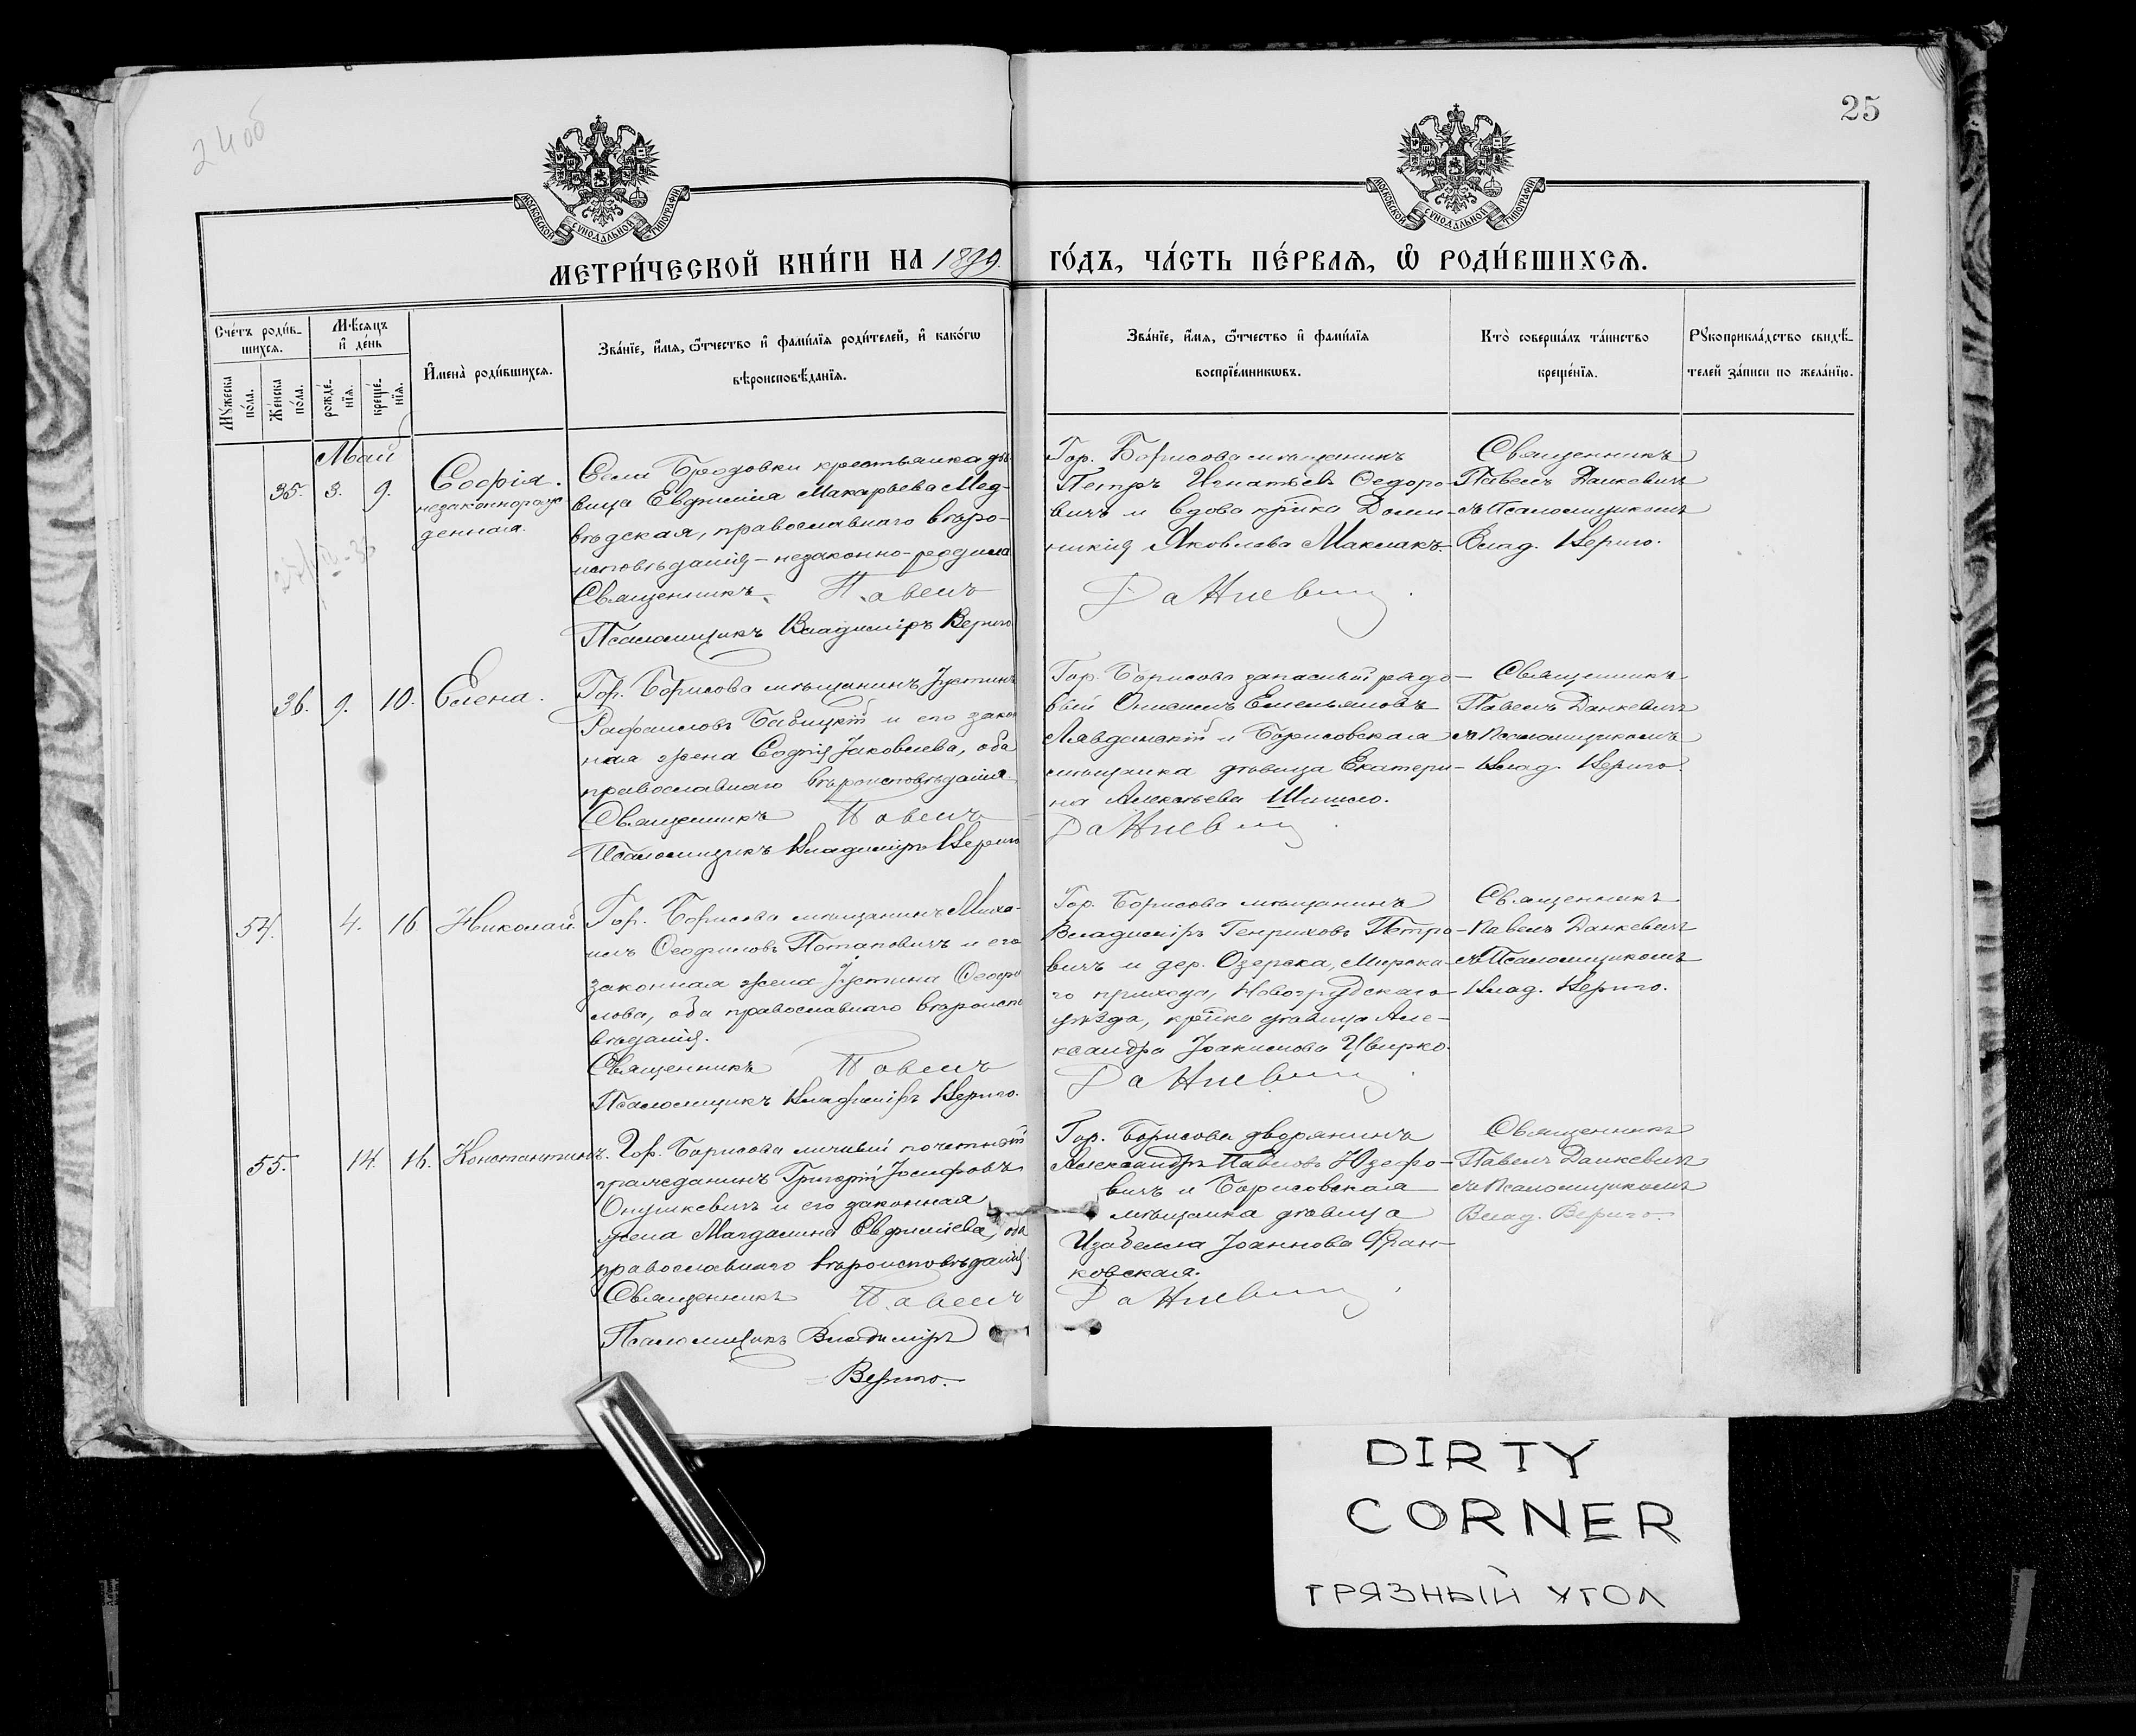 24об
25
МОСКОВСКОЙ СѴНОДАЛЬНОЙ ТИПОГРАФІИ
МОСКОВСКОЙ СѴНОДАЛЬНОЙ ТИПОГРАФІИ
МЕТРИ́ЧЕСКОЙ КНИ́ГИ НА 1899.
ГО́ДЪ, ЧА́СТЬ ПЕ́РВАѦ, Ѡ РОДИ́ВШИХСѦ.
Сче́тъ роди́в-
шихсѧ.
Мѣ́сѧцъ
и҆ де́нь
Мꙋ́жеска
по́ла.
Же́нска
по́ла.
рожде́-
нїѧ.
креще́-
нїѧ.
И҆мена̀ роди́вшихсѧ.
Зва́нїе, и҆́мѧ, ѻ҆́тчество и҆ фами́лїѧ роди́телей, и҆ како́гѡ
вѣроисповѣ́данїѧ.
Зва́нїе, и҆́мѧ, ѻ҆́тчество и҆ фами́лїѧ
воспрїе́мникѡвъ.
Кто̀ соверша́лъ та́инство
креще́нїѧ.
Рꙋкоприкла́дство свидѣ́-
телей за́писи по жела́нїю.
Май
35. 3. 9.
Софія.
незаконнорож
денная.
Села Бродовки крестьянка дѣ
вица Евфимія Макарьева Мед-
вѣдская, православнаго вѣро-
исповѣданія – незаконно-родила
Священникъ Павелъ
Псаломщикъ Владиміръ Вериго
Гор. Борисова мѣщанинъ
Петръ Игнатьевъ Ѳедоро-
вичъ и вдова кр‑ка Доми-
никія Яковлева Маклакъ.
Даꙋкевичъ
Священникъ
Павелъ Данкевичъ
съ Псаломщикомъ
Влад. Вериго.
36. 9. 10. Елена.
Гор. Борисова мѣщанинъ Іустинъ
Рафаиловъ Бабицкій и его закон
ная жена Софія Іаковлева, оба
православнаго вѣроисповѣданія.
Священникъ Павелъ
Псаломщикъ Владиміръ Вериго
Гор. Борисова запасный рядо-
вый Онисимъ Емельяновъ
Лявданскій и Борисовская
мѣщанка дѣвица Екатери-
на Алексѣева Шишло.
Данкевичъ
Священникъ
Павелъ Данкевичъ
съ Псаломщикомъ
Влад. Вериго.
54. 4. 16 Николай.
Гор. Борисова мѣщанинъ Миха-
илъ Ѳеофиловъ Потаповичъ и его
законная жена Іустина Ѳеофи
лова, оба православнаго вѣроиспо
вѣданія.
Священникъ Павелъ
Псаломщикъ Владиміръ Вериго.
Гор. Борисова мѣщанинъ
Владиміръ Генриховъ Петро-
вичъ и дер. Озерска, Мирска-
го прихода, Новогрудскаго
уѣзда, кр‑ка дѣвица Але-
ксандра Іоакимова Цвирко.
Данкевичъ
Священникъ
Павелъ Данкевичъ
съ Псаломщикомъ
Влад. Вериго.
55. 14. 16. Константинъ.
Гор. Борисова личный почетный
гражданинъ Григорій Іосифовъ
Онушкевичъ и его законная
жена Магдалина Евфиміева, оба
православнаго вѣроисповѣданія
Священникъ Павелъ
Псаломщикъ Владиміръ
Вериго.
Гор. Борисова дворянинъ
Александръ Павловъ Юзефо-
вичъ и Борисовская
мѣщанка дѣвица
Изабелла Іоаннова Фран-
ковская.
Данкевичъ
Священникъ
Павелъ Данкевичъ
съ Псаломщикомъ
Влад. Вериго.
DIRTY
CORNER
ГРЯЗНЫЙ УГОЛ